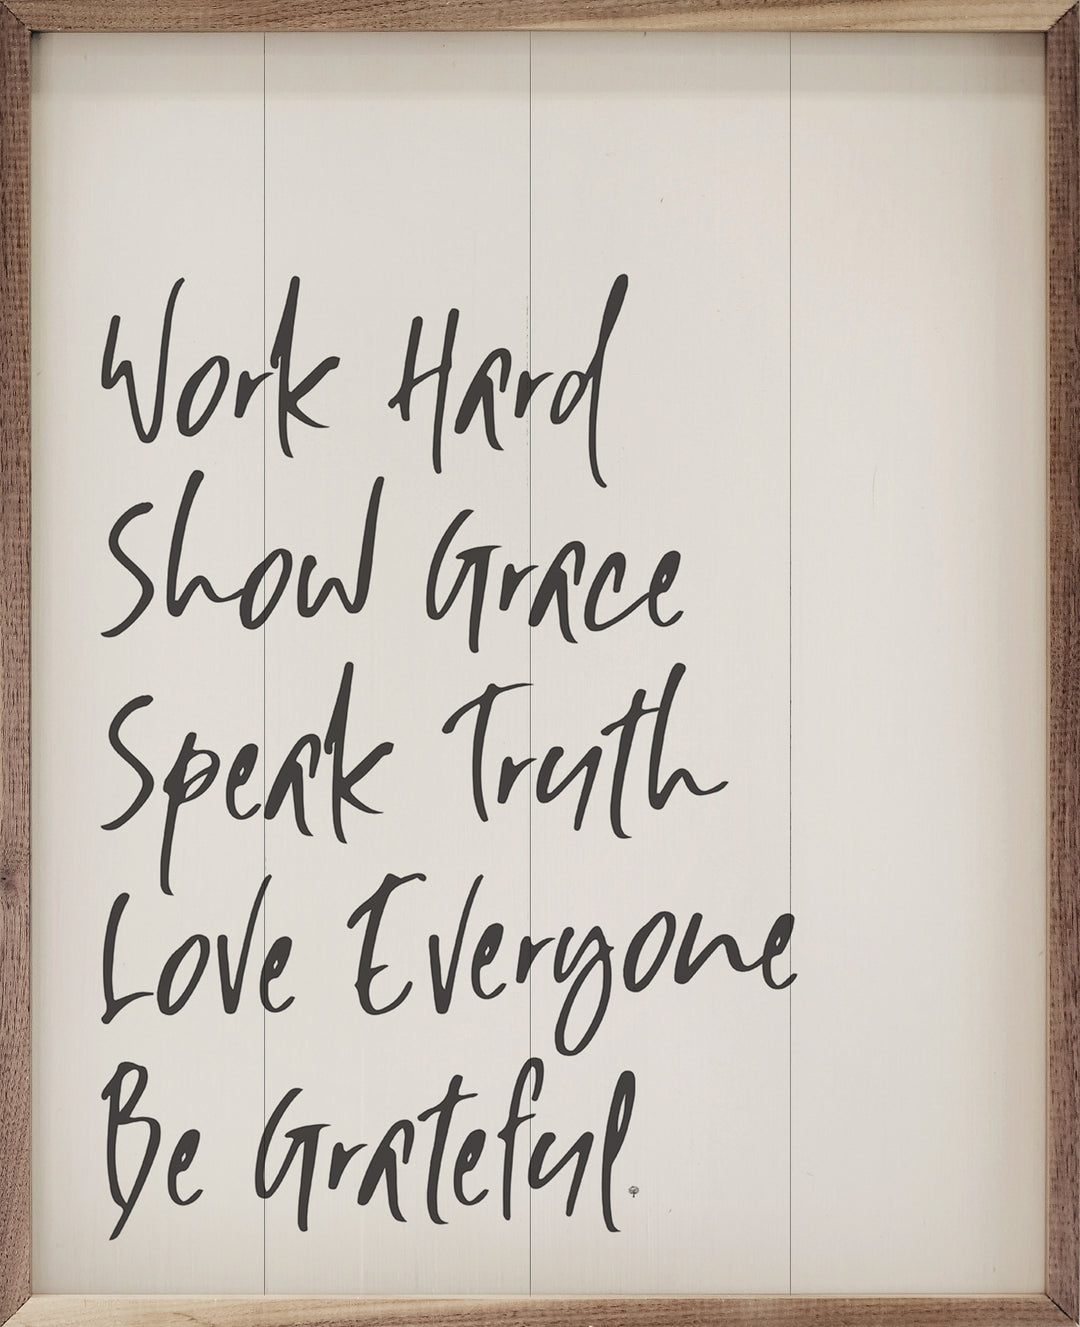 Work Hard
Show Grace
Speak Truth
Love Everyone
Be Grateful